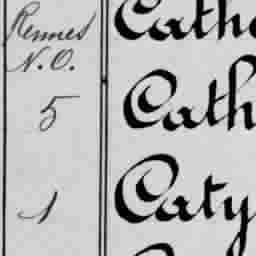 Rennes Cath
N.O.
5 Cath
1 Caty